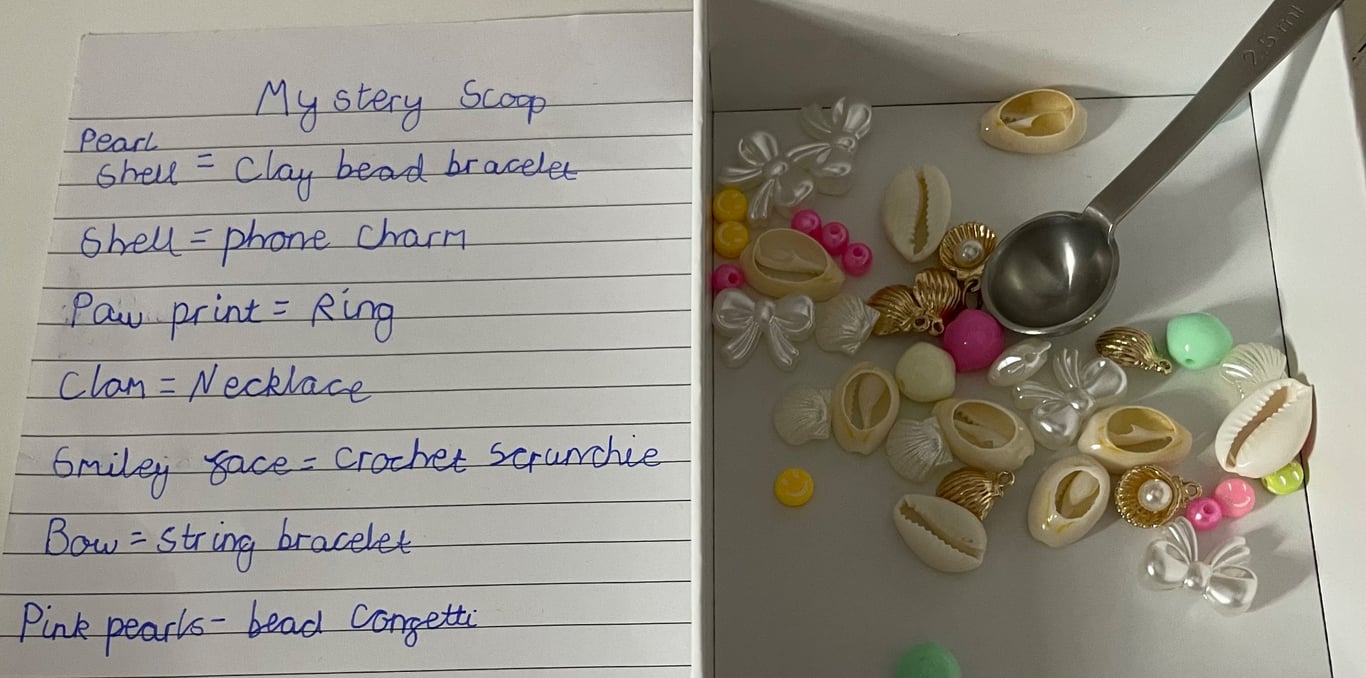 Mystery Scoop
Pearl
Shell = Clay bead bracelet
Shell = phone charm
Paw print = Ring
Clam = Necklace
Smiley face = Crochet Scrunchie
Bow = String bracelet
Pink pearls - bead Confetti
2.5 ml